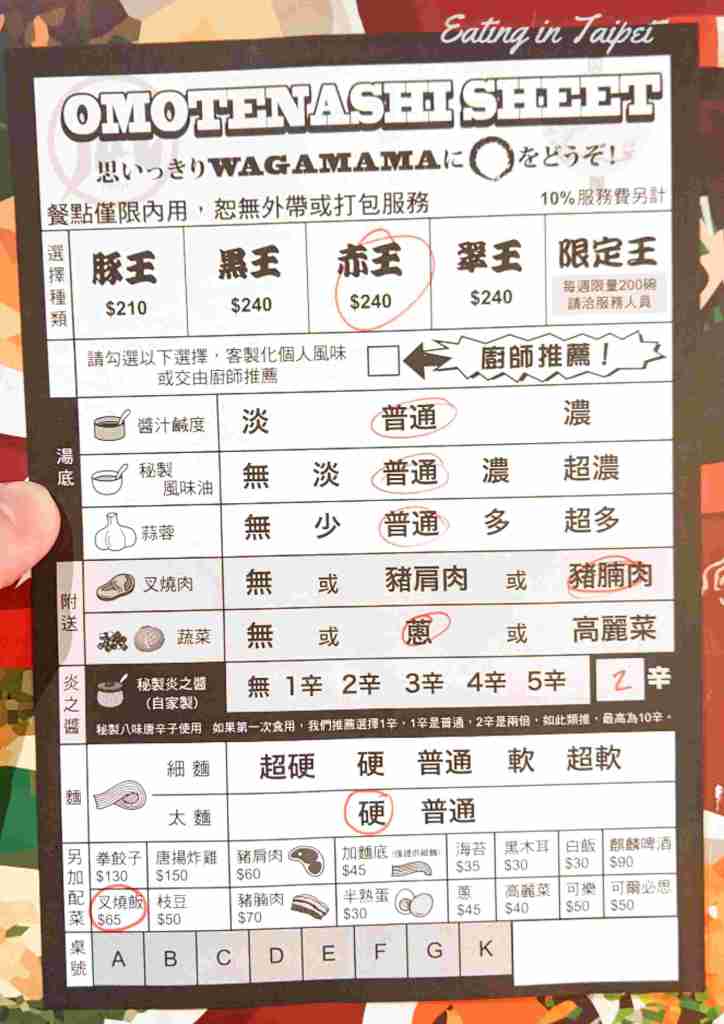 Eating in Taipei
OMOTENASHI SHEET
思いっきりWAGAMAMAに◯をどうぞ！
餐點僅限內用，恕無外帶或打包服務
10%服務費另計
選擇種類
豚王 黒王 赤王 翠王 限定王
$210 $240 $240 $240 每週限量200碗
請洽服務人員
請勾選以下選擇，客製化個人風味
或交由廚師推薦
廚師推薦！
湯底
醬汁鹹度 淡 普通 濃
秘製風味油 無 淡 普通 濃 超濃
蒜蓉 無 少 普通 多 超多
附送
叉燒肉 無 或 豬肩肉 或 豬腩肉
蔬菜 無 或 蔥 或 高麗菜
炎之醬
秘製炎之醬 無 1辛 2辛 3辛 4辛 5辛 2 辛
(自家製)
秘製八味唐辛子使用 如果第一次食用，我們推薦選擇1辛，1辛是普通，2辛是兩倍，如此類推，最高為10辛。
麵
細麵 超硬 硬 普通 軟 超軟
太麵 硬 普通
另加配菜
拳餃子 唐揚炸雞 豬肩肉 加麵底 海苔 黑木耳 白飯 麒麟啤酒
$130 $150 $60 $45 $35 $30 $30 $90
叉燒飯 枝豆 豬腩肉 半熟蛋 蔥 高麗菜 可樂 可爾必思
$65 $50 $70 $30 $45 $40 $50 $50
桌號 A B C D E F G K